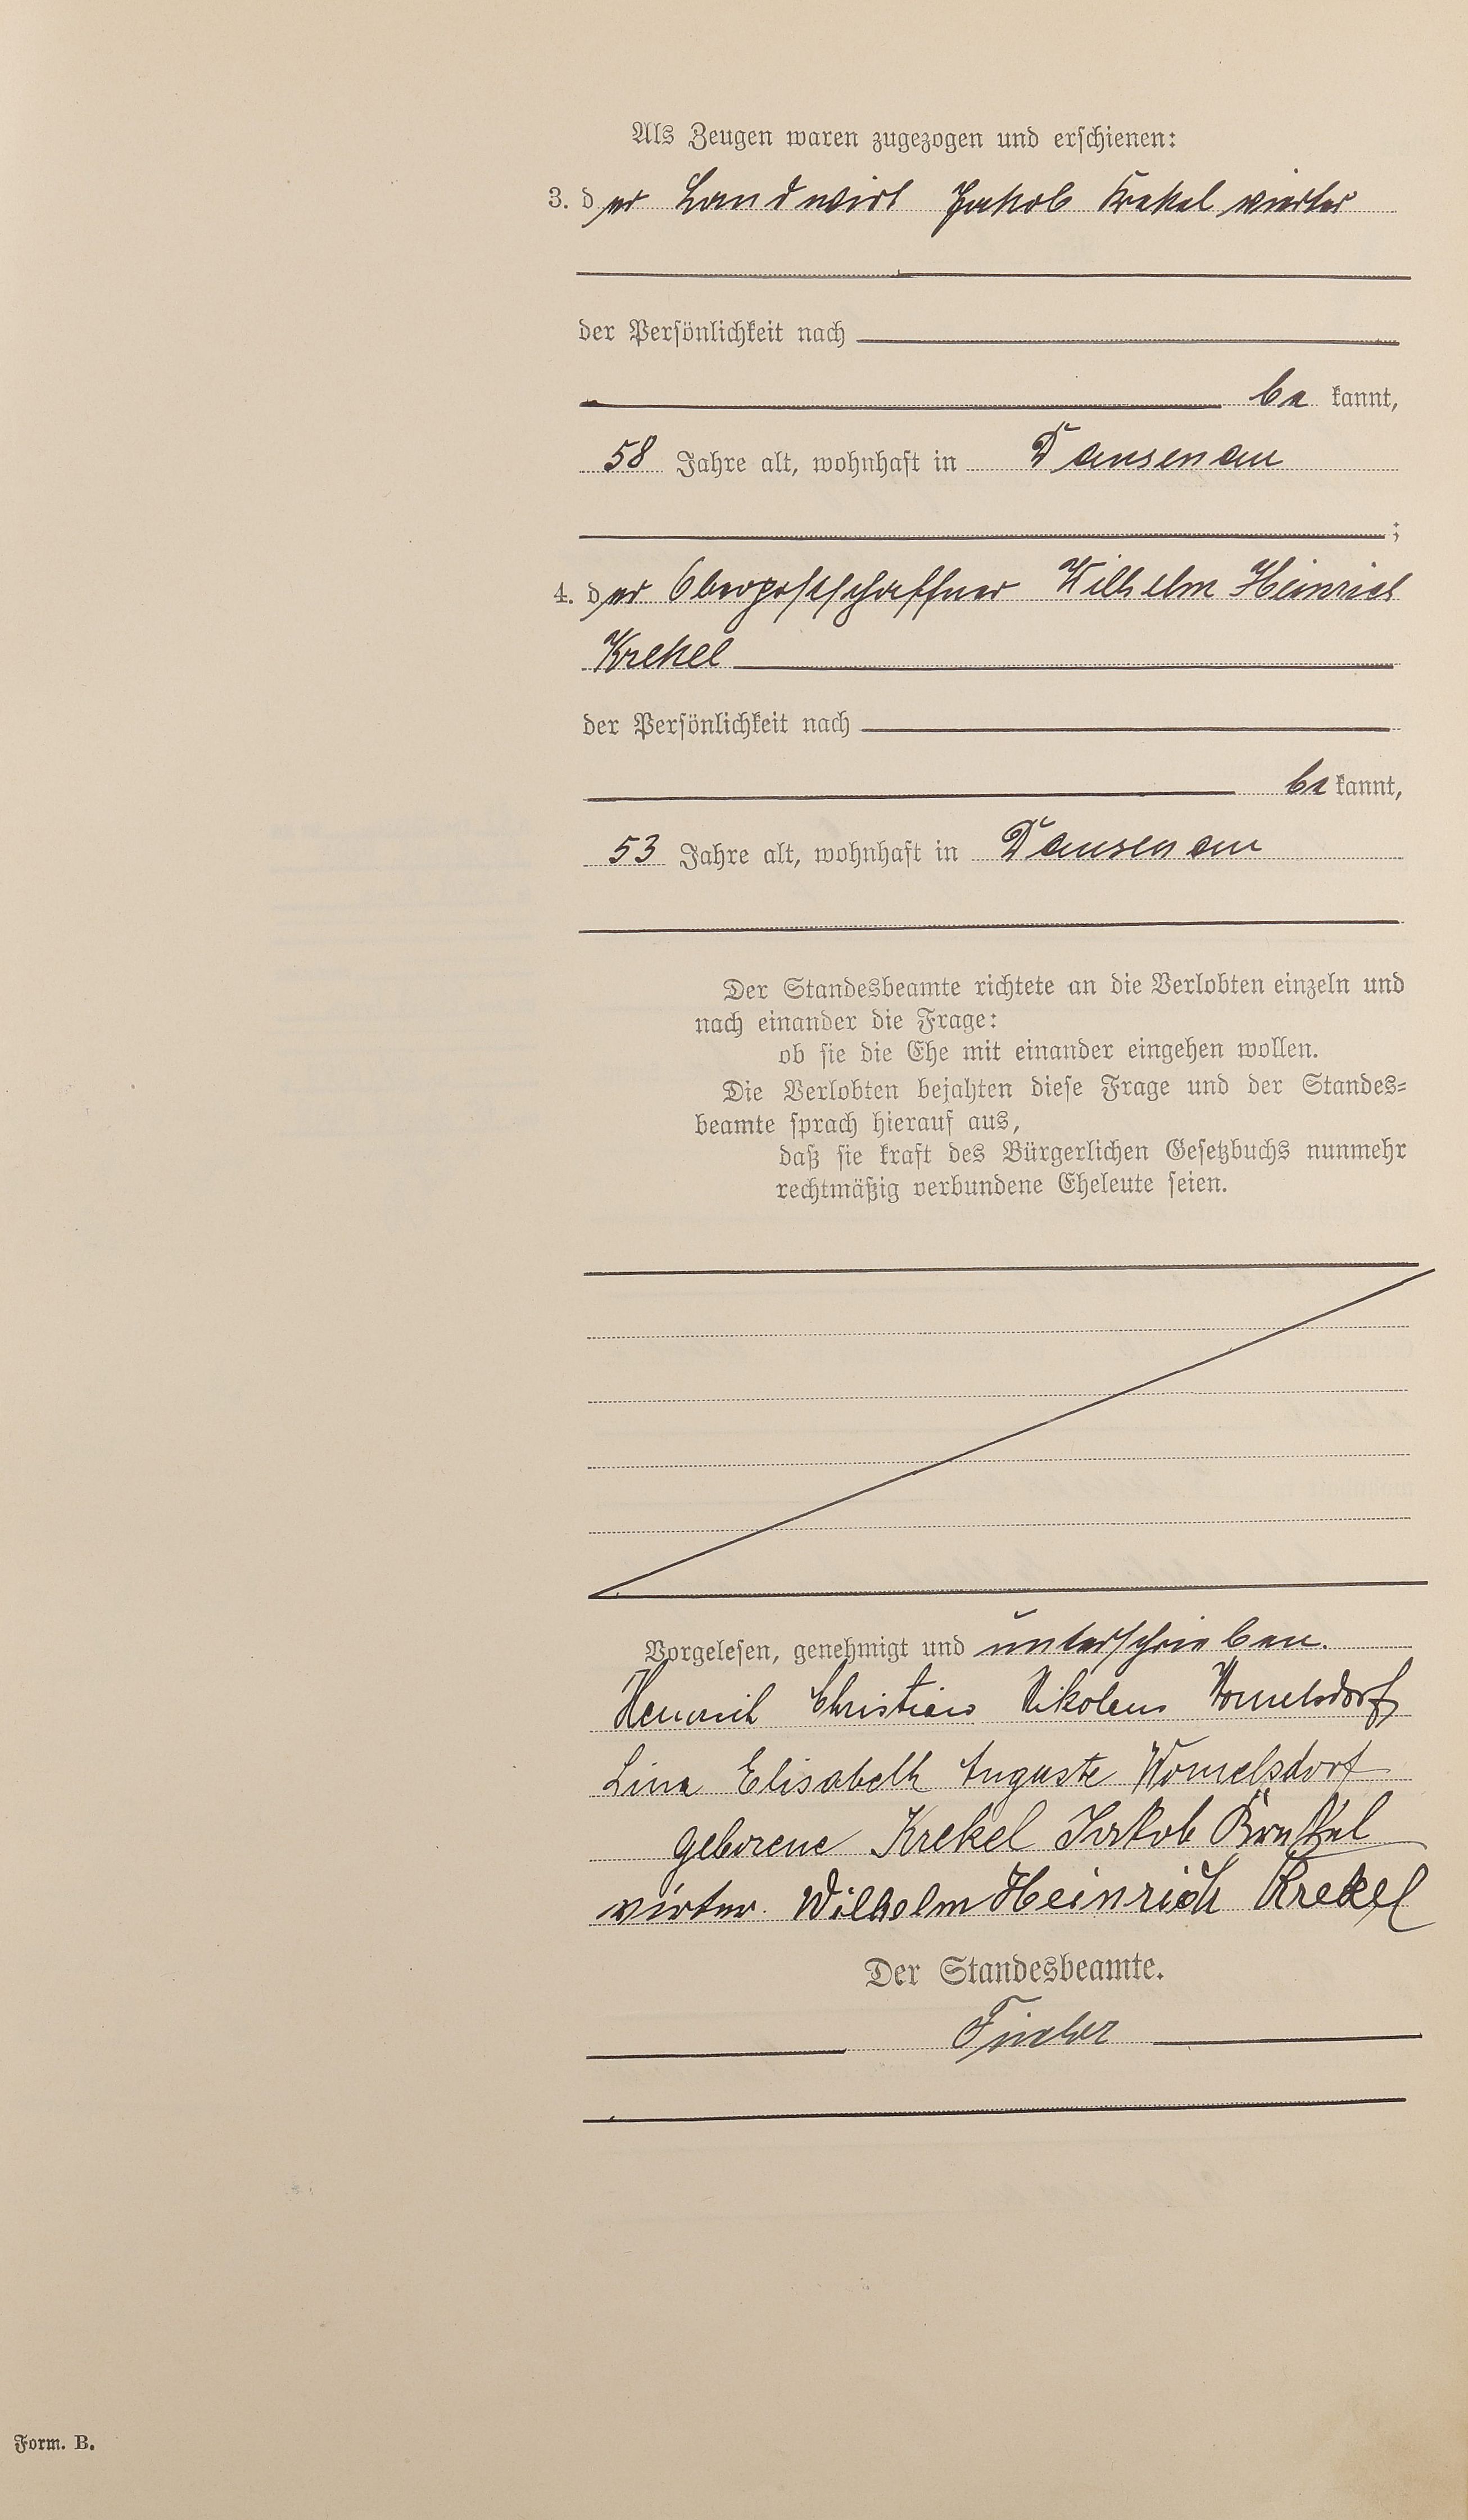 Als Zeugen waren zugezogen und erschienen:
3. der Landwirt Jakob Krekel vierter
der Persönlichkeit nach
be kannt,
58 Jahre alt, wohnhaft in Dausenau
;
4. der Oberpostschaffner Wilhelm Heinrich
Krekel
der Persönlichkeit nach
be kannt,
53 Jahre alt, wohnhaft in Dausenau
Der Standesbeamte richtete an die Verlobten einzeln und
nach einander die Frage:
ob sie die Ehe mit einander eingehen wollen.
Die Verlobten bejahten diese Frage und der Standes-
beamte sprach hierauf aus,
daß sie kraft des Bürgerlichen Gesetzbuchs nunmehr
rechtmäßig verbundene Eheleute seien.
Vorgelesen, genehmigt und unterschrieben.
Heinrich Christian Nikolaus Womelsdorf
Lina Elisabeth Auguste Womelsdorf
geborene Krekel Jakob Krekel
vierter. Wilhelm Heinrich Krekel
Der Standesbeamte.
Form. B.